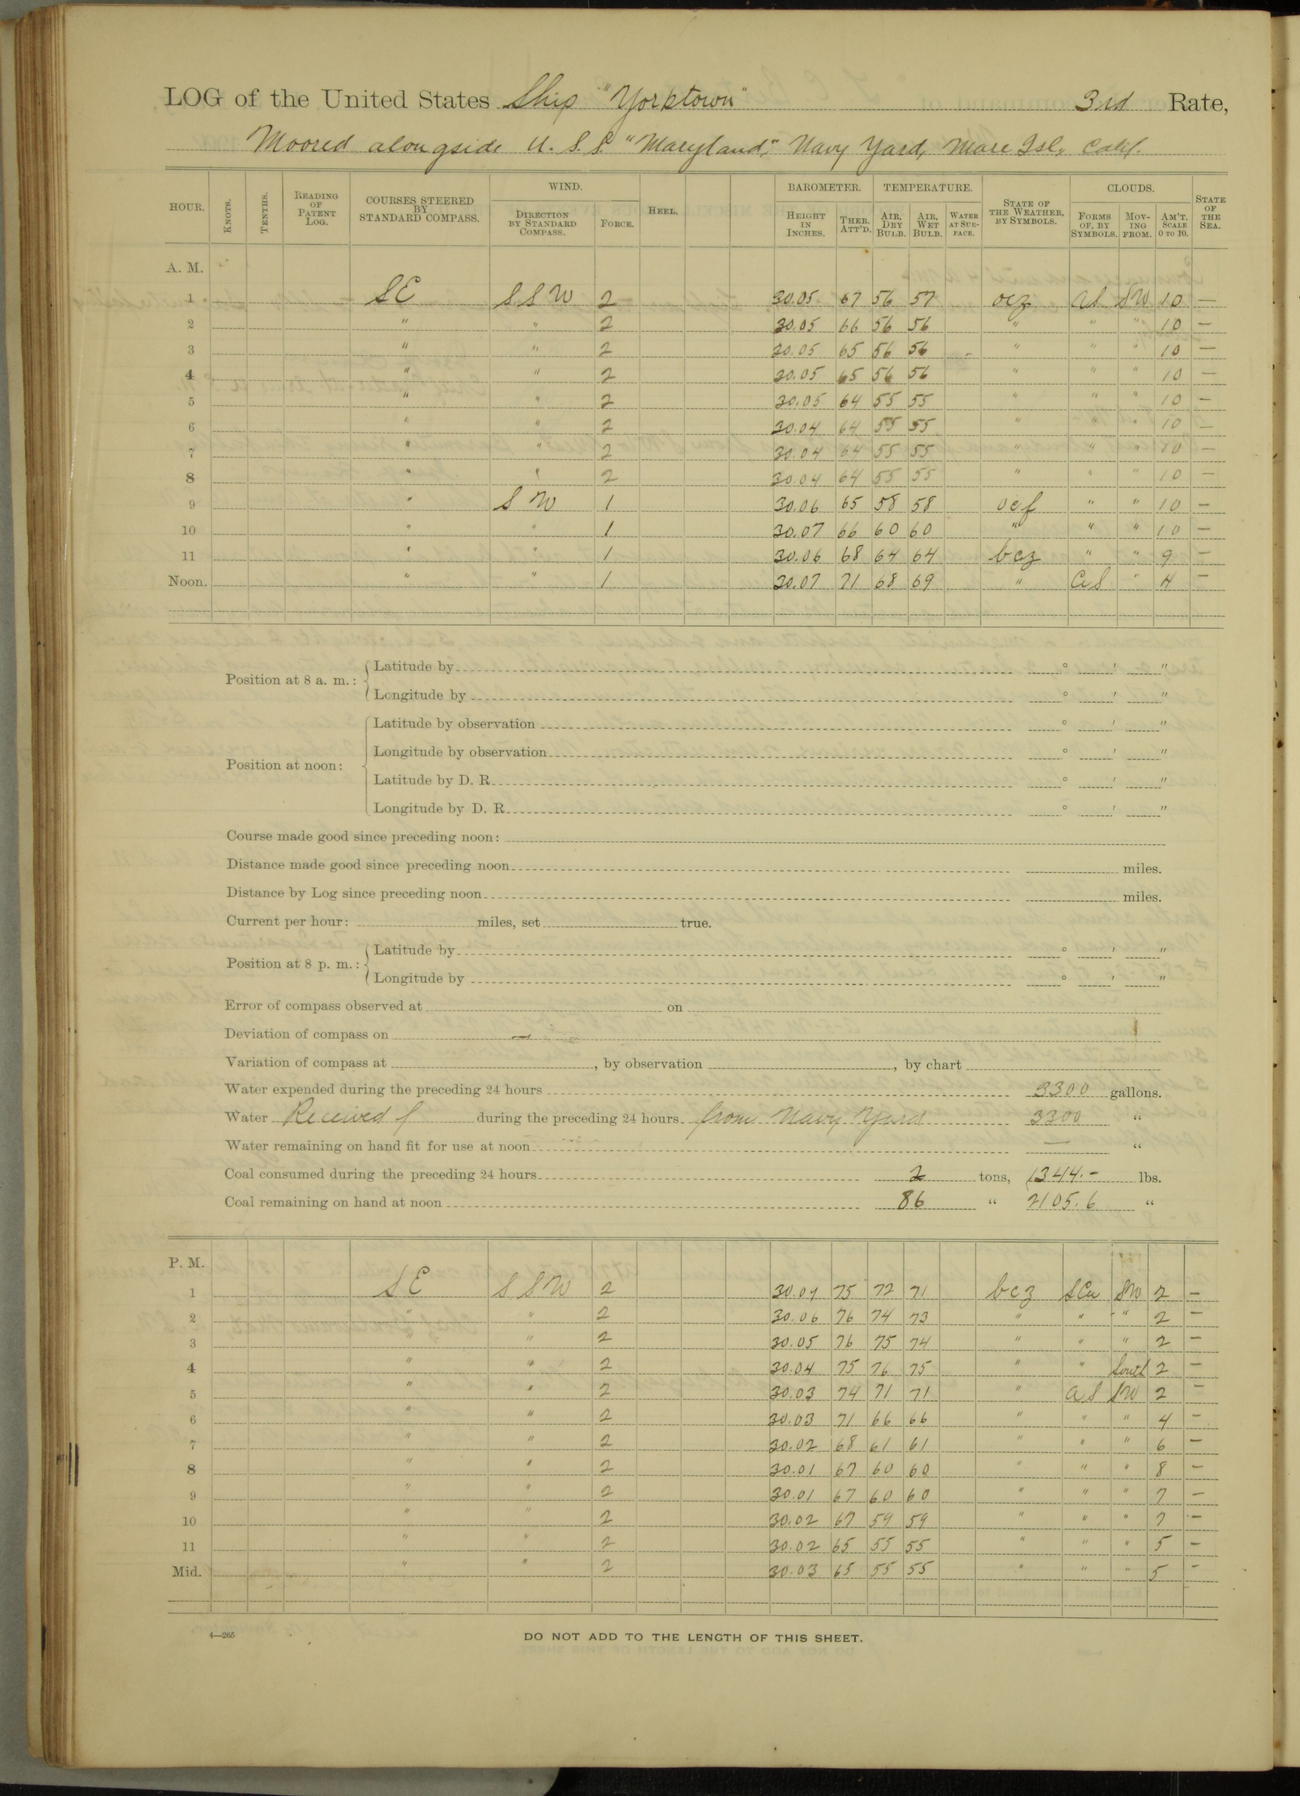 LOG of the United States Ship "Yorktown" 3rd Rate,
Moored alongside U.S.S. "Maryland," Navy Yard, Mare Isl, Calif.
HOUR. KNOTS. TENTHS. READING OF PATENT LOG. COURSES STEERED BY STANDARD COMPASS. WIND. DIRECTION BY STANDARD COMPASS. FORCE. HEEL. BAROMETER. HEIGHT IN INCHES. THER. ATT'D. TEMPERATURE. AIR, DRY BULB. AIR, WET BULB. WATER AT SURFACE. STATE OF THE WEATHER, BY SYMBOLS. CLOUDS. FORMS OF, BY SYMBOLS. MOVING FROM. AM'T. SCALE 0 TO 10. STATE OF THE SEA.
A. M.
1 SE SSW 2 30.05 67 56 57 ocz aS SW 10 —
2 " " 2 30.05 66 56 56 " " " 10 —
3 " " 2 30.05 65 56 56 " " " 10 —
4 " " 2 30.05 65 56 56 " " " 10 —
5 " " 2 30.05 64 55 55 " " " 10 —
6 " " 2 30.04 64 55 55 " " " 10 —
7 " " 2 30.04 64 55 55 " " " 10 —
8 " " 2 30.04 64 55 55 " " " 10 —
9 " SW 1 30.06 65 58 58 ocf " " 10 —
10 " " 1 30.07 66 60 60 " " " 10 —
11 " " 1 30.06 68 64 64 bcz " " 9 —
Noon. " " 1 30.07 71 68 69 " aS " 4 —
Position at 8 a. m.: Latitude by ° ' "
Longitude by ° ' "
Position at noon: Latitude by observation ° ' "
Longitude by observation ° ' "
Latitude by D. R. ° ' "
Longitude by D. R. ° ' "
Course made good since preceding noon:
Distance made good since preceding noon miles.
Distance by Log since preceding noon miles.
Current per hour: miles, set true.
Position at 8 p. m.: Latitude by ° ' "
Longitude by ° ' "
Error of compass observed at on
Deviation of compass on —
Variation of compass at , by observation , by chart
Water expended during the preceding 24 hours 3300 gallons.
Water Received during the preceding 24 hours from Navy Yard 3300 "
Water remaining on hand fit for use at noon — "
Coal consumed during the preceding 24 hours 2 tons, 1344.- lbs.
Coal remaining on hand at noon 86 " 2105.6 "
P. M.
1 SE SSW 2 30.07 75 72 71 bcz SCu SW 2 —
2 " " 2 30.06 76 74 73 " " " 2 —
3 " " 2 30.05 76 75 74 " " " 2 —
4 " " 2 30.04 75 76 75 " " South 2 —
5 " " 2 30.03 74 71 71 " aS SW 2 —
6 " " 2 30.03 71 66 66 " " " 4 —
7 " " 2 30.02 68 61 61 " " " 6 —
8 " " 2 30.01 67 60 60 " " " 8 —
9 " " 2 30.01 67 60 60 " " " 7 —
10 " " 2 30.02 67 59 59 " " " 7 —
11 " " 2 30.02 65 55 55 " " " 5 —
Mid. " " 2 30.03 65 55 55 " " " 5 —
4—265
DO NOT ADD TO THE LENGTH OF THIS SHEET.